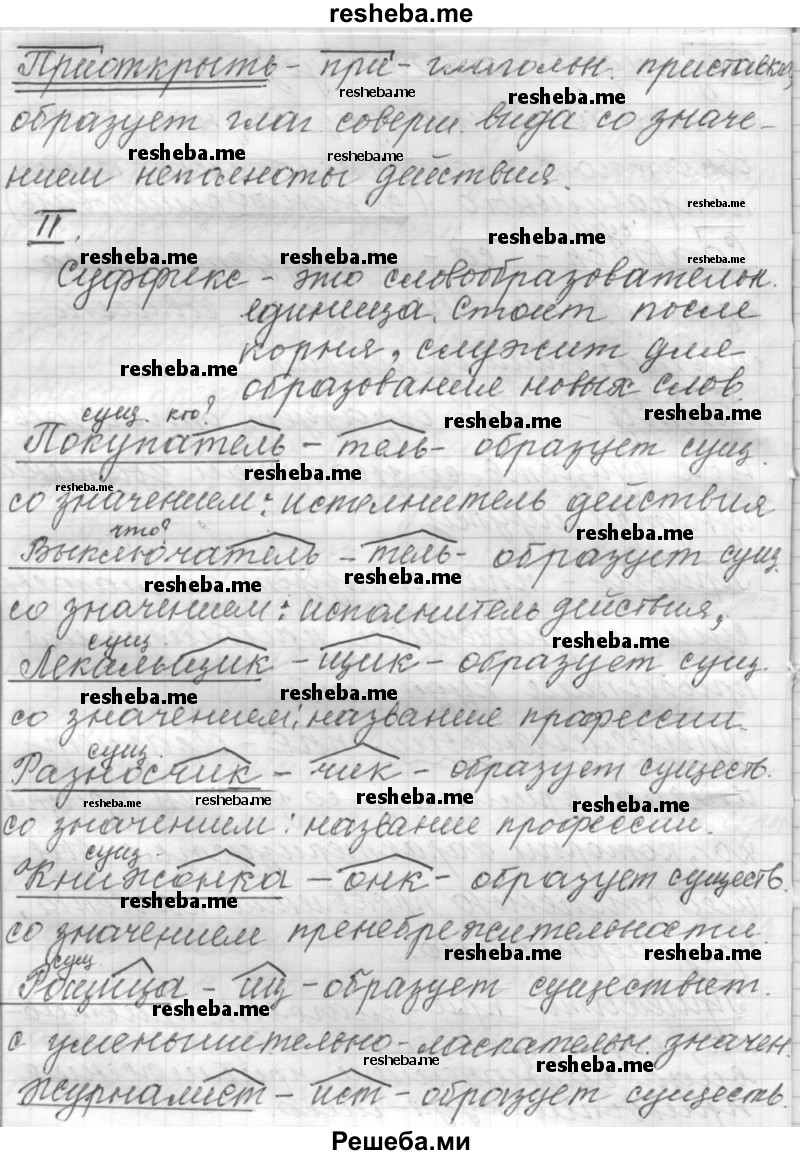 resheba.me
Приоткрыть - при - глагольн. приставка,
resheba.me
resheba.me
образует глаг соверш. вида со значе-
resheba.me
resheba.me
нием неполноты действия.
resheba.me
II.
resheba.me
resheba.me
resheba.me
resheba.me
Суффикс - это словообразовательн.
единица. Стоит после
корня, служит для
resheba.me
образования новых слов.
сущ. кто?
resheba.me
resheba.me
Покупатель - тель - образует сущ.
resheba.me
resheba.me
со значением: исполнитель действия
что?
resheba.me
Выключатель - тель - образует сущ.
resheba.me
resheba.me
со значением: исполнитель действия,
сущ.
resheba.me
Лекальщик - щик - образует сущ.
resheba.me
resheba.me
со значением: название профессии
сущ.
Разносчик - чик - образует существ.
resheba.me
resheba.me
resheba.me
resheba.me
со значением: название профессии.
сущ.
Книжонка - онк - образует существ.
resheba.me
resheba.me
со значением пренебрежительности.
resheba.me
resheba.me
сущ.
Рощица - иц - образует существит.
resheba.me
resheba.me
с уменьшительно-ласкательн. значен.
resheba.me
resheba.me
Журналист - ист - образует существ.
Решеба.ми